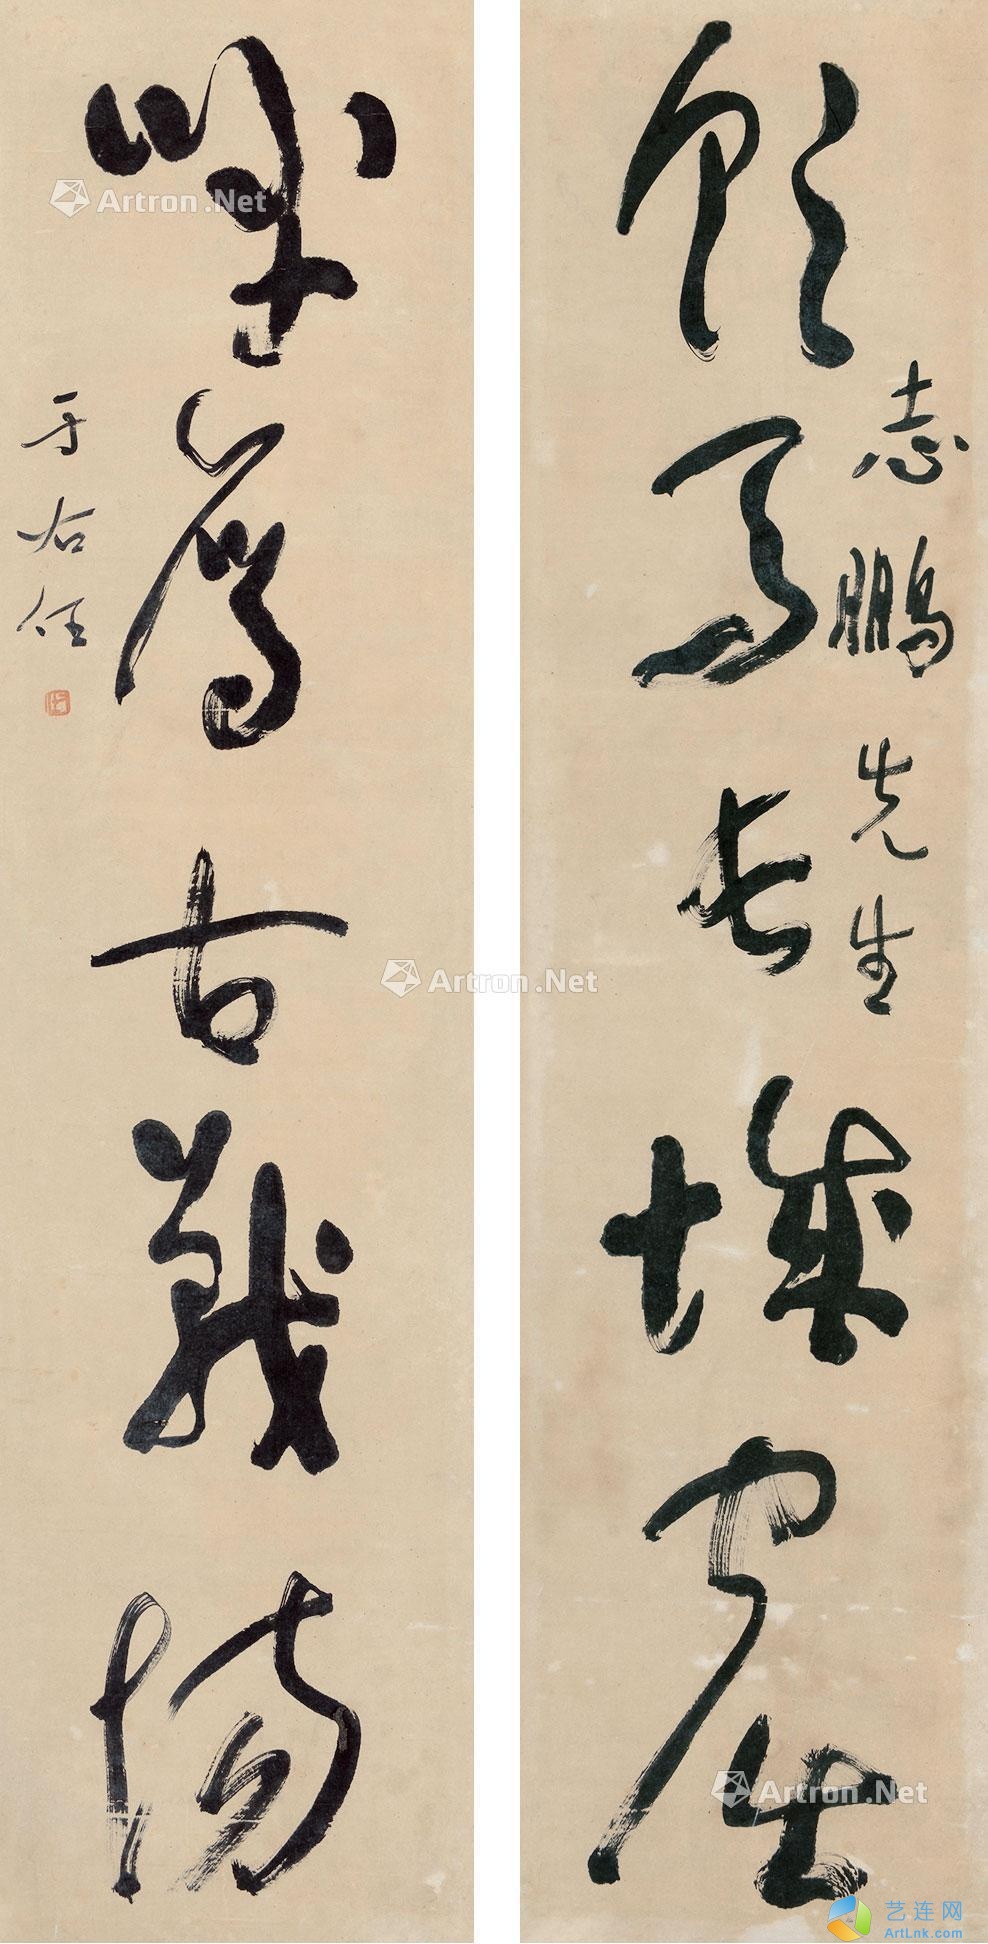 飲馬長城窟
志鵬先生
呼鷹古戰場
于右任
Artron.Net
Artron.Net
Artron.Net
艺连网
ArtLnk.com